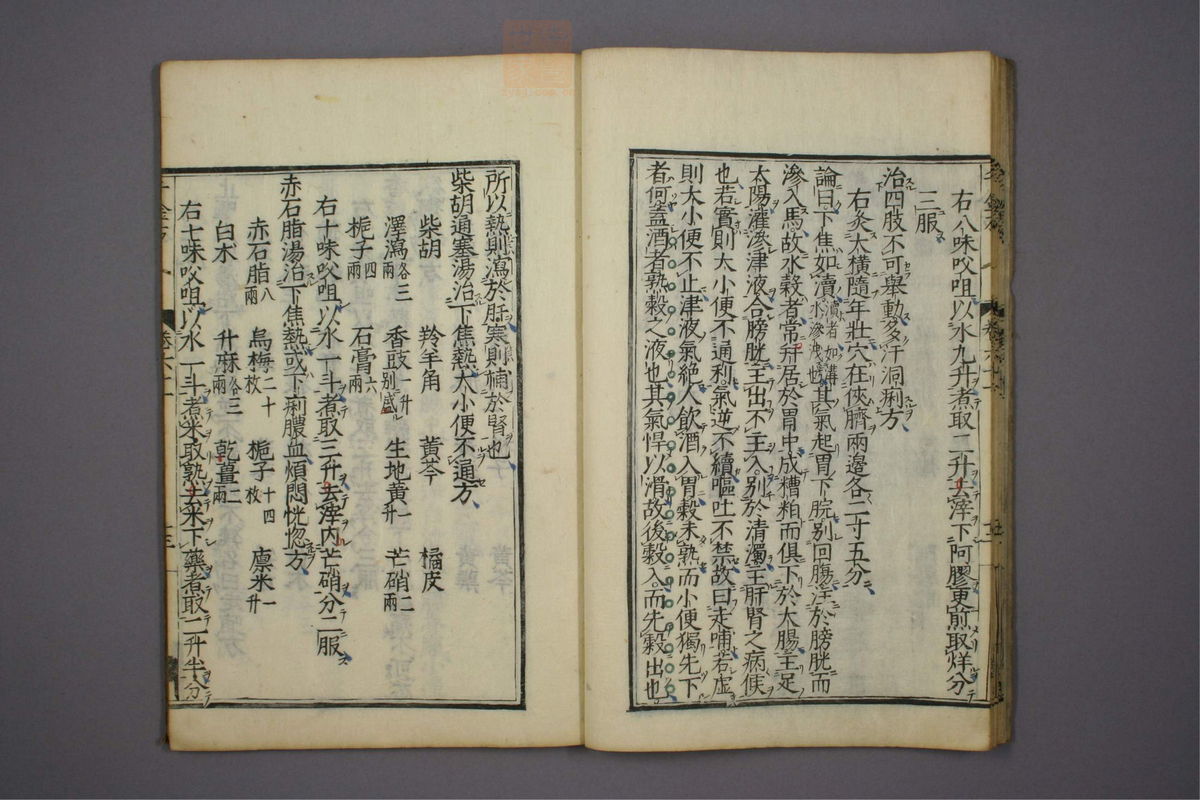 右八味㕮咀以水九升煮取二升去滓下阿膠更煎取烊分
三服
治四肢不可舉動多汗洞痢方
右灸大橫隨年壯穴在俠臍兩邊各二寸五分
論曰下焦如瀆瀆者如溝水滲洩也其氣起胃下脘别回腸注於膀胱而
滲入焉故水穀者常并居於胃中成糟粕而俱下於大腸主足
太陽灌滲津液合膀胱主出不主入别於清濁主肝腎之病候
也若實則大小便不通利氣逆不續嘔吐不禁故曰走哺若虛
則大小便不止津液氣絶人飲酒入胃穀未熟而小便獨先下
者何蓋酒者熟穀之液也其氣悍以滑故後穀入而先穀出也
所以熱則瀉於肝寒則補於腎也
柴胡通塞湯治下焦熱大小便不通方
柴胡 羚羊角 黃芩 橘皮
澤瀉各三兩 香豉一升别盛 生地黃一升 芒硝二兩
梔子四兩 石膏六兩
右十味㕮咀以水一斗煮取三升去滓内芒硝分二服
赤石脂湯治下焦熱或下痢膿血煩悶恍惚方
赤石脂八兩 烏梅二十枚 梔子十四枚 廪米一升
白朮 升麻各三兩 乾薑二兩
右十味㕮咀以水一斗煮米取熟去米下藥煮取二升半分